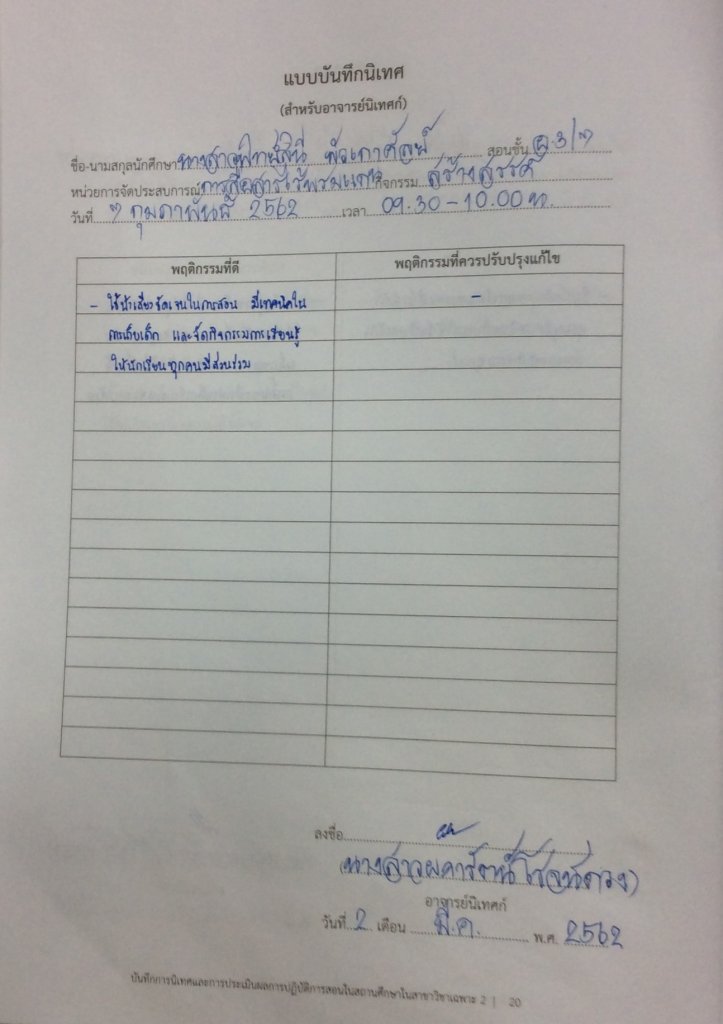 แบบบันทึกนิเทศ
(สำหรับอาจารย์นิเทศก์)
ชื่อ-นามสกุลนักศึกษา นางสาว สอนชั้น อ.3/7
หน่วยการจัดประสบการณ์ การสื่อสารไร้พรมแดน กิจกรรม สร้างสรรค์
วันที่ 7 กุมภาพันธ์ 2562 เวลา 09.30-10.00 น.
พฤติกรรมที่ดี พฤติกรรมที่ควรปรับปรุงแก้ไข
- ใช้น้ำเสียงชัดเจนในการสอน มีเทคนิคใน -
การเก็บเด็ก และจัดกิจกรรมการเรียนรู้
ให้นักเรียนทุกคนมีส่วนร่วม
ลงชื่อ
(นางสาวผการัตน์ โรจน์ดวง)
อาจารย์นิเทศก์
วันที่ 2 เดือน มี.ค. พ.ศ. 2562
บันทึกการนิเทศและการประเมินผลการปฏิบัติการสอนในสถานศึกษาในสาขาวิชาเฉพาะ 2 | 20